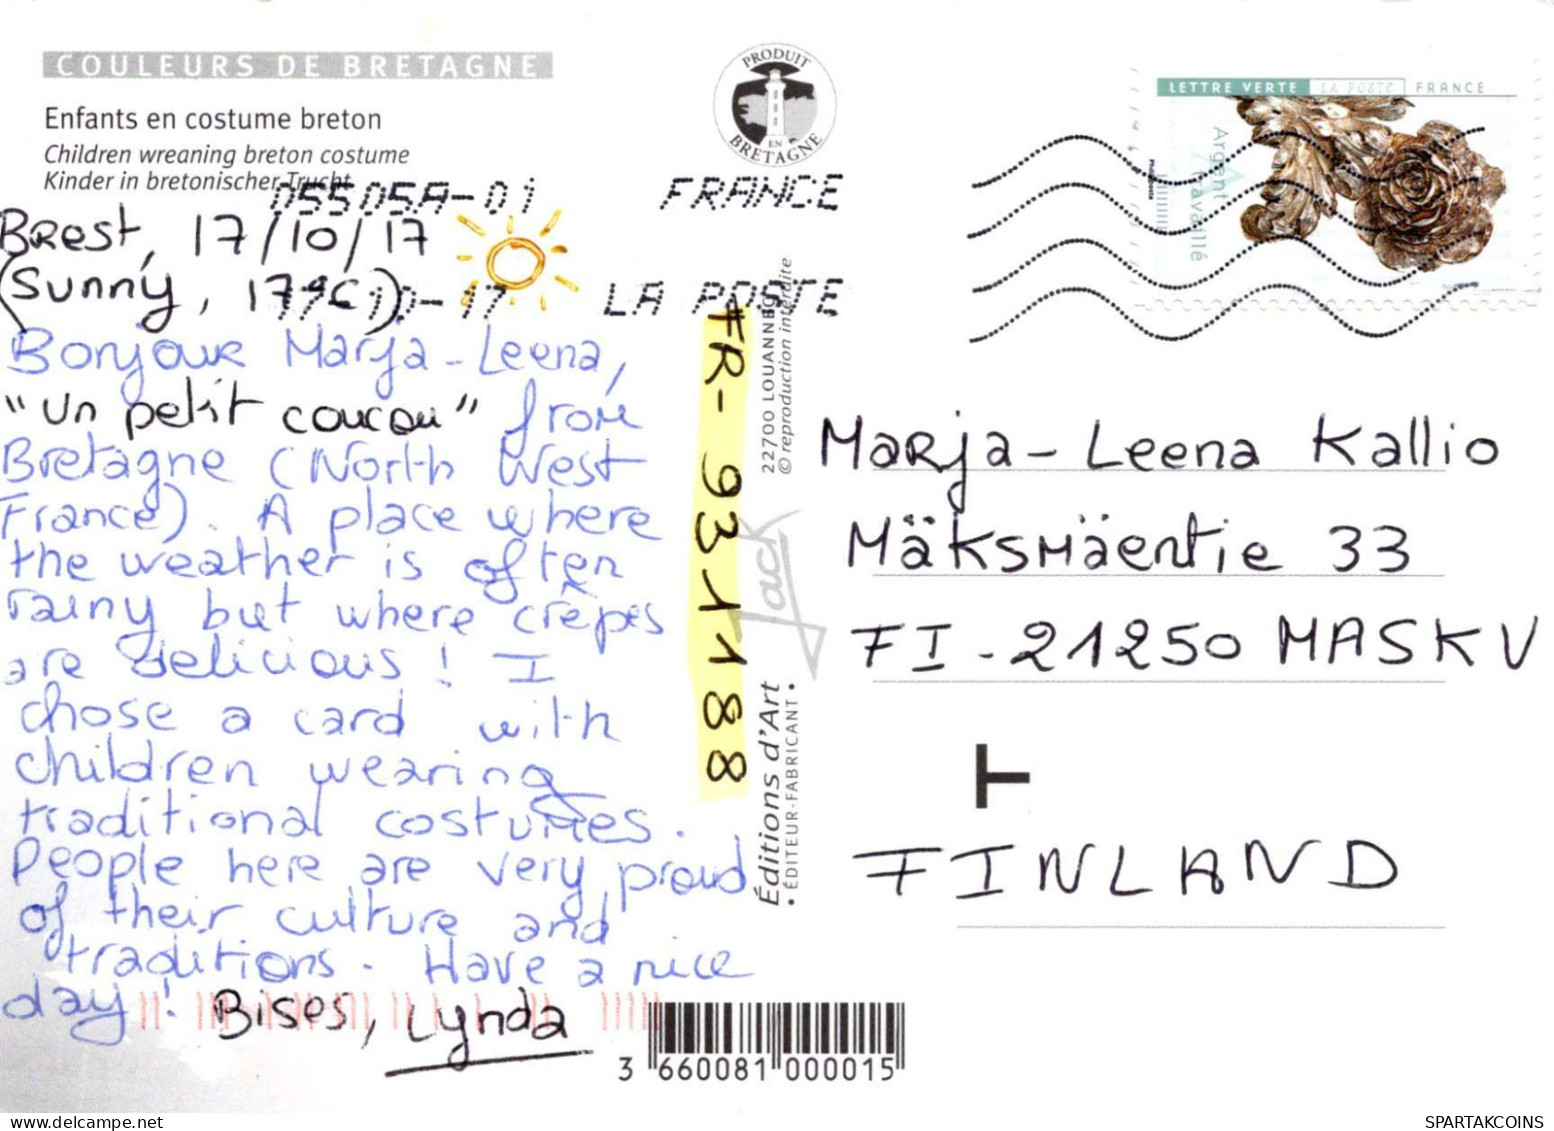 COULEURS DE BRETAGNE
Enfants en costume breton
Children wreaning breton costume
Kinder in bretonischer Trucht
PRODUIT
EN
BRETAGNE
LETTRE VERTE LA POSTE FRANCE
Argent
Travaillé
Phil@poste
05505A-01 FRANCE
-10-17 LA POSTE
Brest, 17/10/17
(Sunny, 17°C)
Bonjour Marja-Leena,
"un petit coucou" from
Bretagne (North West
France). A place where
the weather is often
rainy but where crêpes
are delicious! I
chose a card with
children wearing
traditional costumes.
People here are very proud
of their culture and
traditions. Have a nice
day! Bises, Lynda
FR-931188
22700 LOUANNEC
© reproduction interdite
Jack
Éditions d'Art
• ÉDITEUR-FABRICANT •
Marja-Leena Kallio
Mäksmäentie 33
FI-21250 MASKU
T
FINLAND
3 660081 000015
SPARTAKCOINS